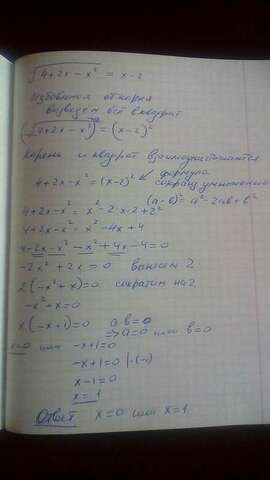 √4+2x-x² = x-2
Избавимся от корня
возведем всё в квадрат
(√4+2x-x²)² = (x-2)²
Корень и квадрат взаимоуничтожаются
4+2x-x² = (x-2)² ↙ формула
сокращ умножения
(a-b)² = a²-2ab+b²
4+2x-x² = x²-2·x·2+2²
4+2x-x² = x²-4x+4
4-2x-x²-x²+4x-4=0
-2x²+2x=0 вынесем 2
2(-x²+x)=0 сократим на 2
-x²+x=0
x(-x+1)=0 a·b=0
⇒a=0 или b=0
x=0 или -x+1=0
-x+1=0 |·(-1)
x-1=0
x=1
Ответ: x=0 или x=1